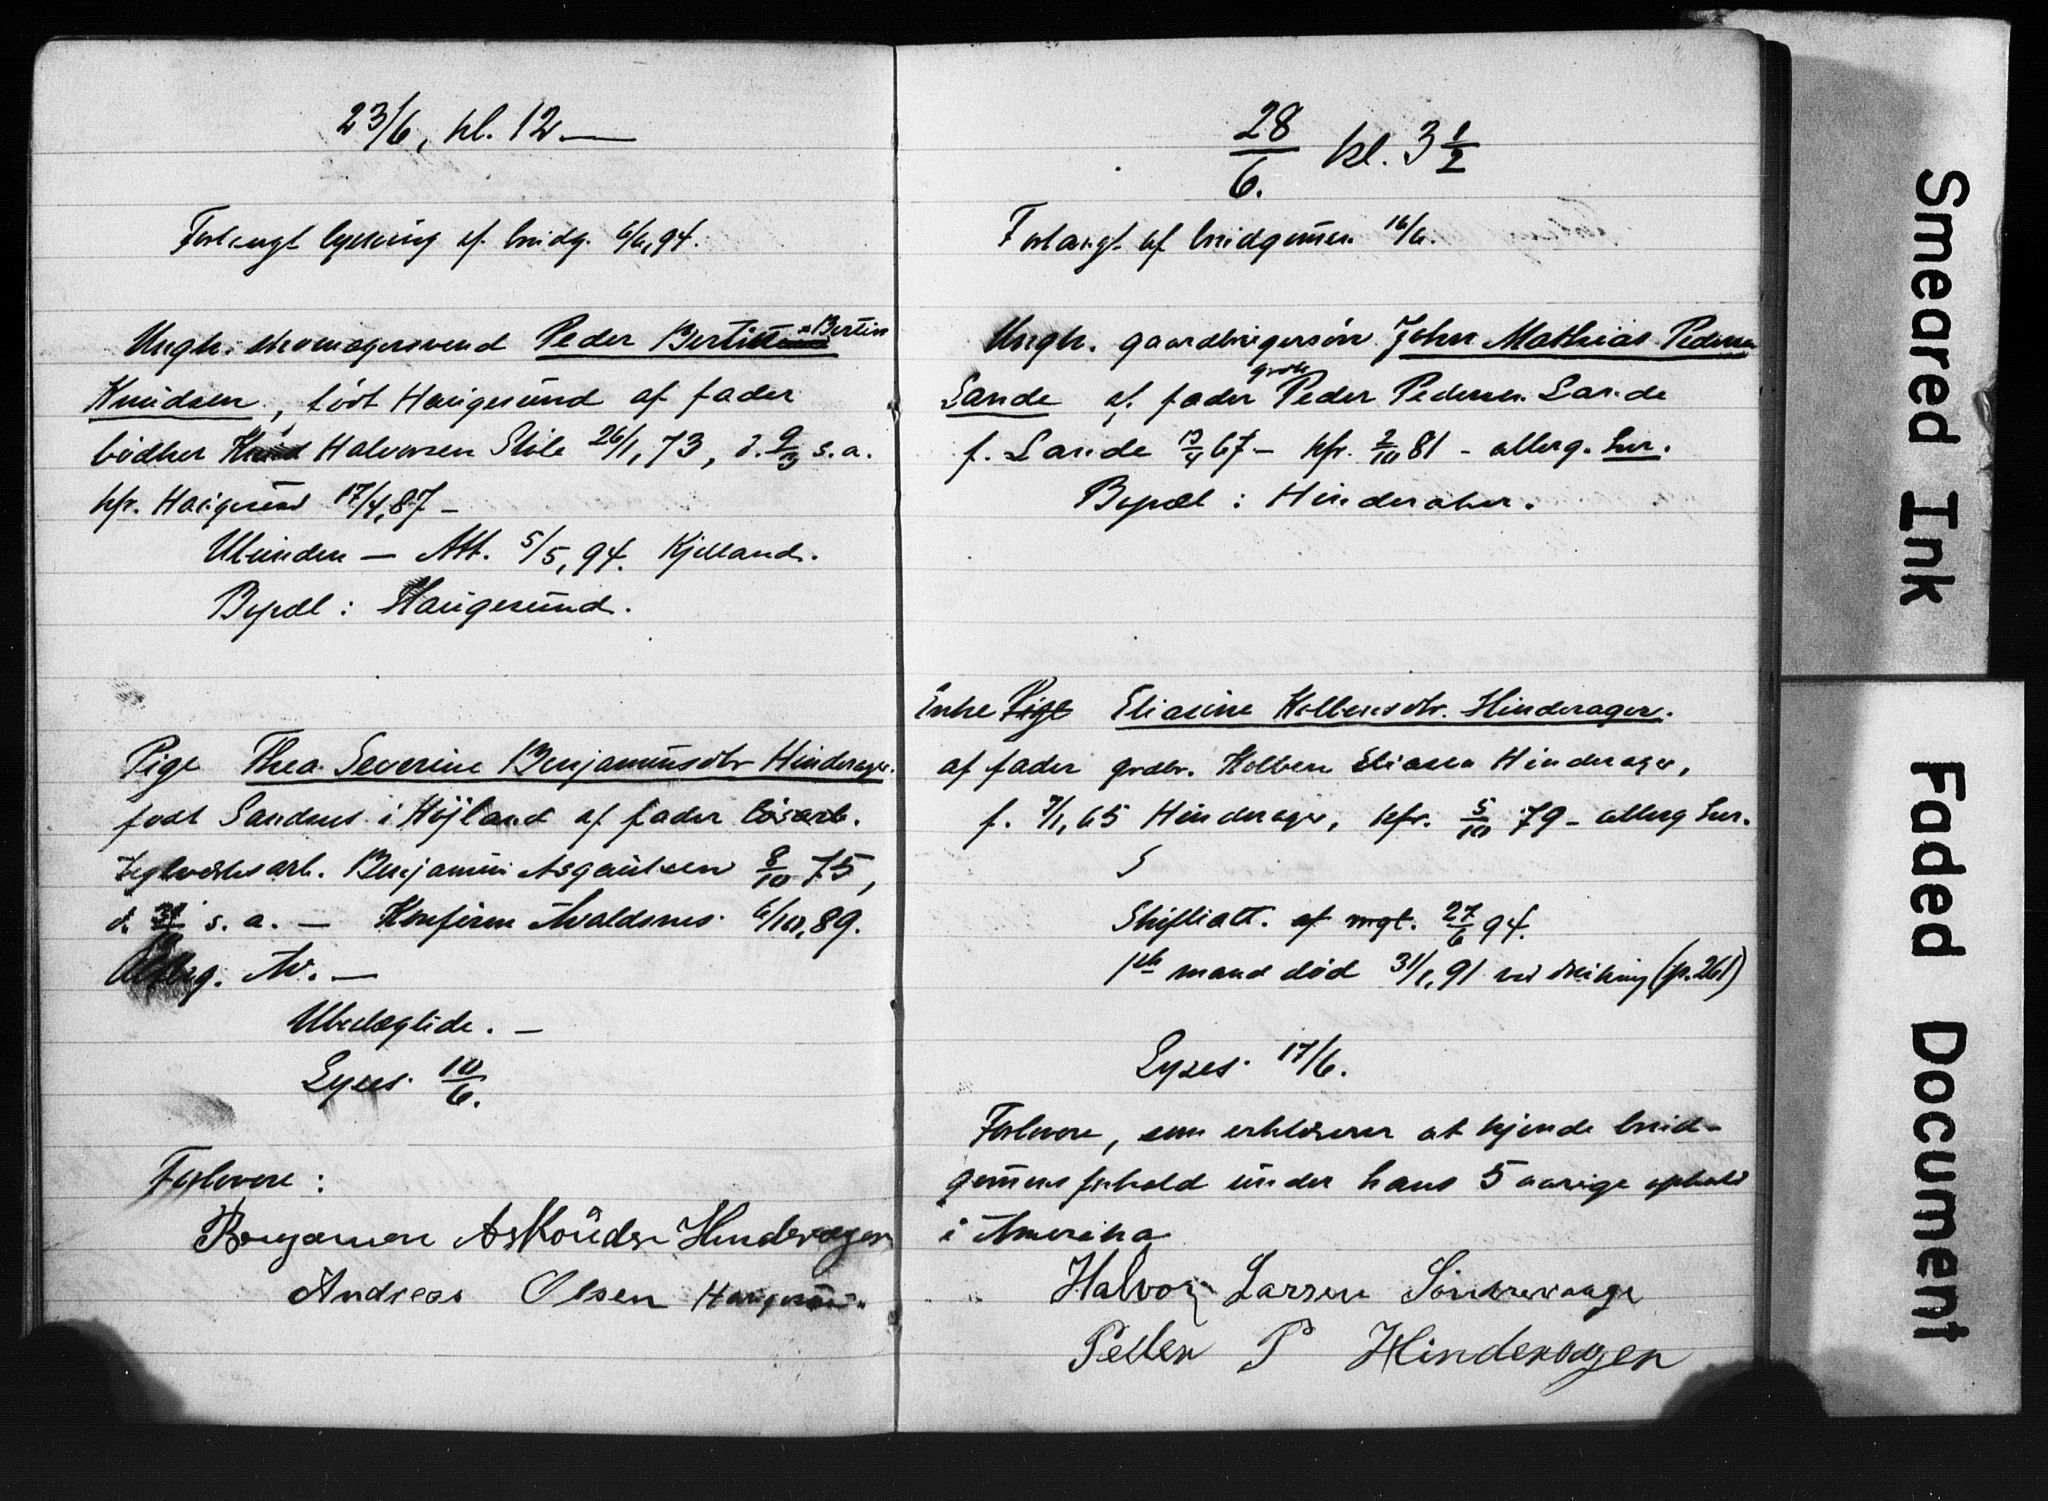 23/6, kl. 12 —
Forlangt lysning af brudg. 6/6, 94.
Ungk. skomagersvend Peder Bertin
Knudsen, født Haugesund af fader
bødker Knud Halvorsen Stole 26/1, 73, d. 9/3 s. a.
kfr. Haugesund 17/4, 87 –
Ubunden — Att. 5/5, 94. Kjelland.
Bopæl : Haugesund.
Pige Thea Severine Benjaminsdtr Hinderager.
født Sandnes i Højland af fader løsarb.
Teglværksarb. Benjamin Asgautsen 8/10 75,
d. s. a. — Konfirm Avaldsnes 6/10, 89.
Altberg. Av. —
Ubeslægtede. —
Lyses 10/6.
Forlovere :
Benjamen Askoudsen Hinderager
Andreas Olsen Haugesund.
28/6. kl. 3 1/2
Forlangt af brudgommen 16/6.
Ungk. gaardbrugersøn John Mathias Pedersen
Sande af fader grdbr Peder Pedersen Sande
f. Sande 13/4 67 – kfr. 2/10 81 – altberg. her.
Bopæl : Hinderaker.
Enke Pige Eliasine Kolbensdtr. Hinderager.
af fader grdbr. Kolben Eliasen Hinderager,
f. 7/1, 65 Hinderager, kfr. 5/10 79 – altberg her.
Skifteatt. af mgt. 27/6 94.
1ste mand død 31/1, 91 ved drukning (p. 261)
Lyses 17/6.
Forlovere, som erklærer at kjende brud-
gommens forhold under hans 5 aarige ophold
i Amerika
Halvor Larsen Søndrevaage
Petter P Hinderager
Smeared Ink
Faded Document